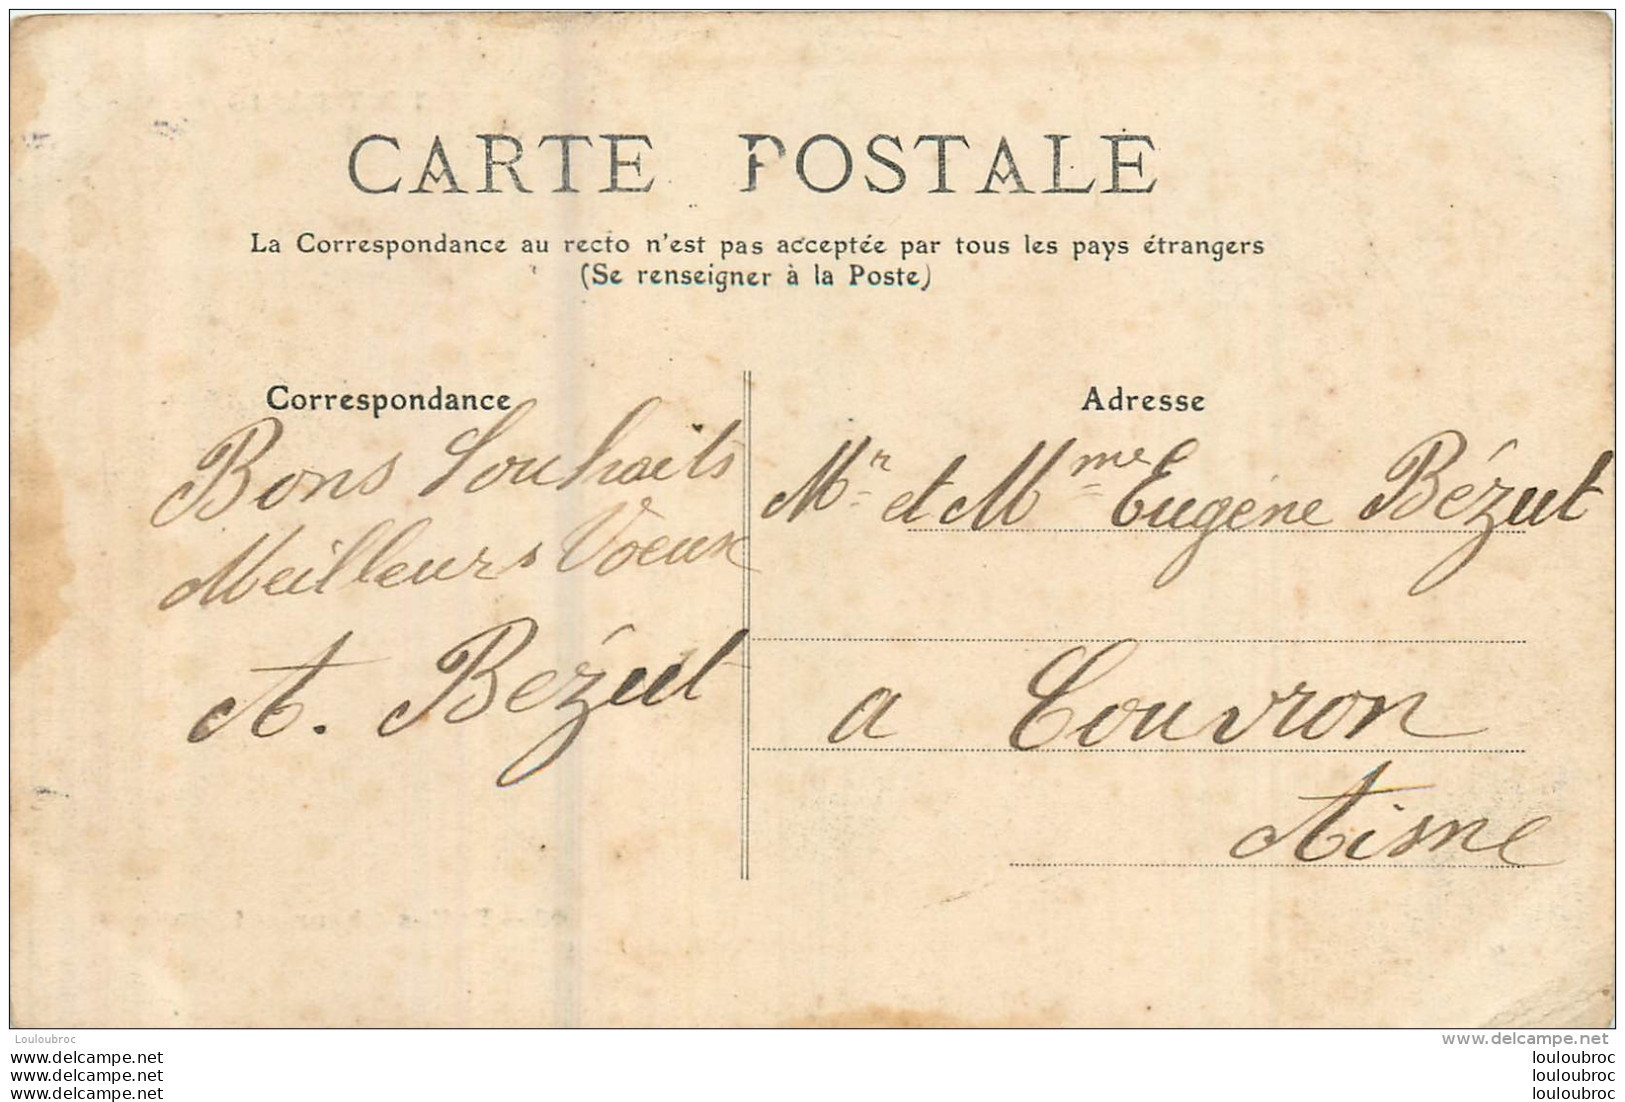 CARTE POSTALE
La Correspondance au recto n'est pas acceptée par tous les pays étrangers
(Se renseigner à la Poste)
Correspondance
Bons Souhaits
Meilleurs Voeux
A. Bézut
Adresse
Mr et Mme Eugène Bézut
a Couvron
Aisne
Louloubroc
www.delcampe.net
www.delcampe.net
www.delcampe.net
www.delcampe.net
louloubroc
louloubroc
louloubroc